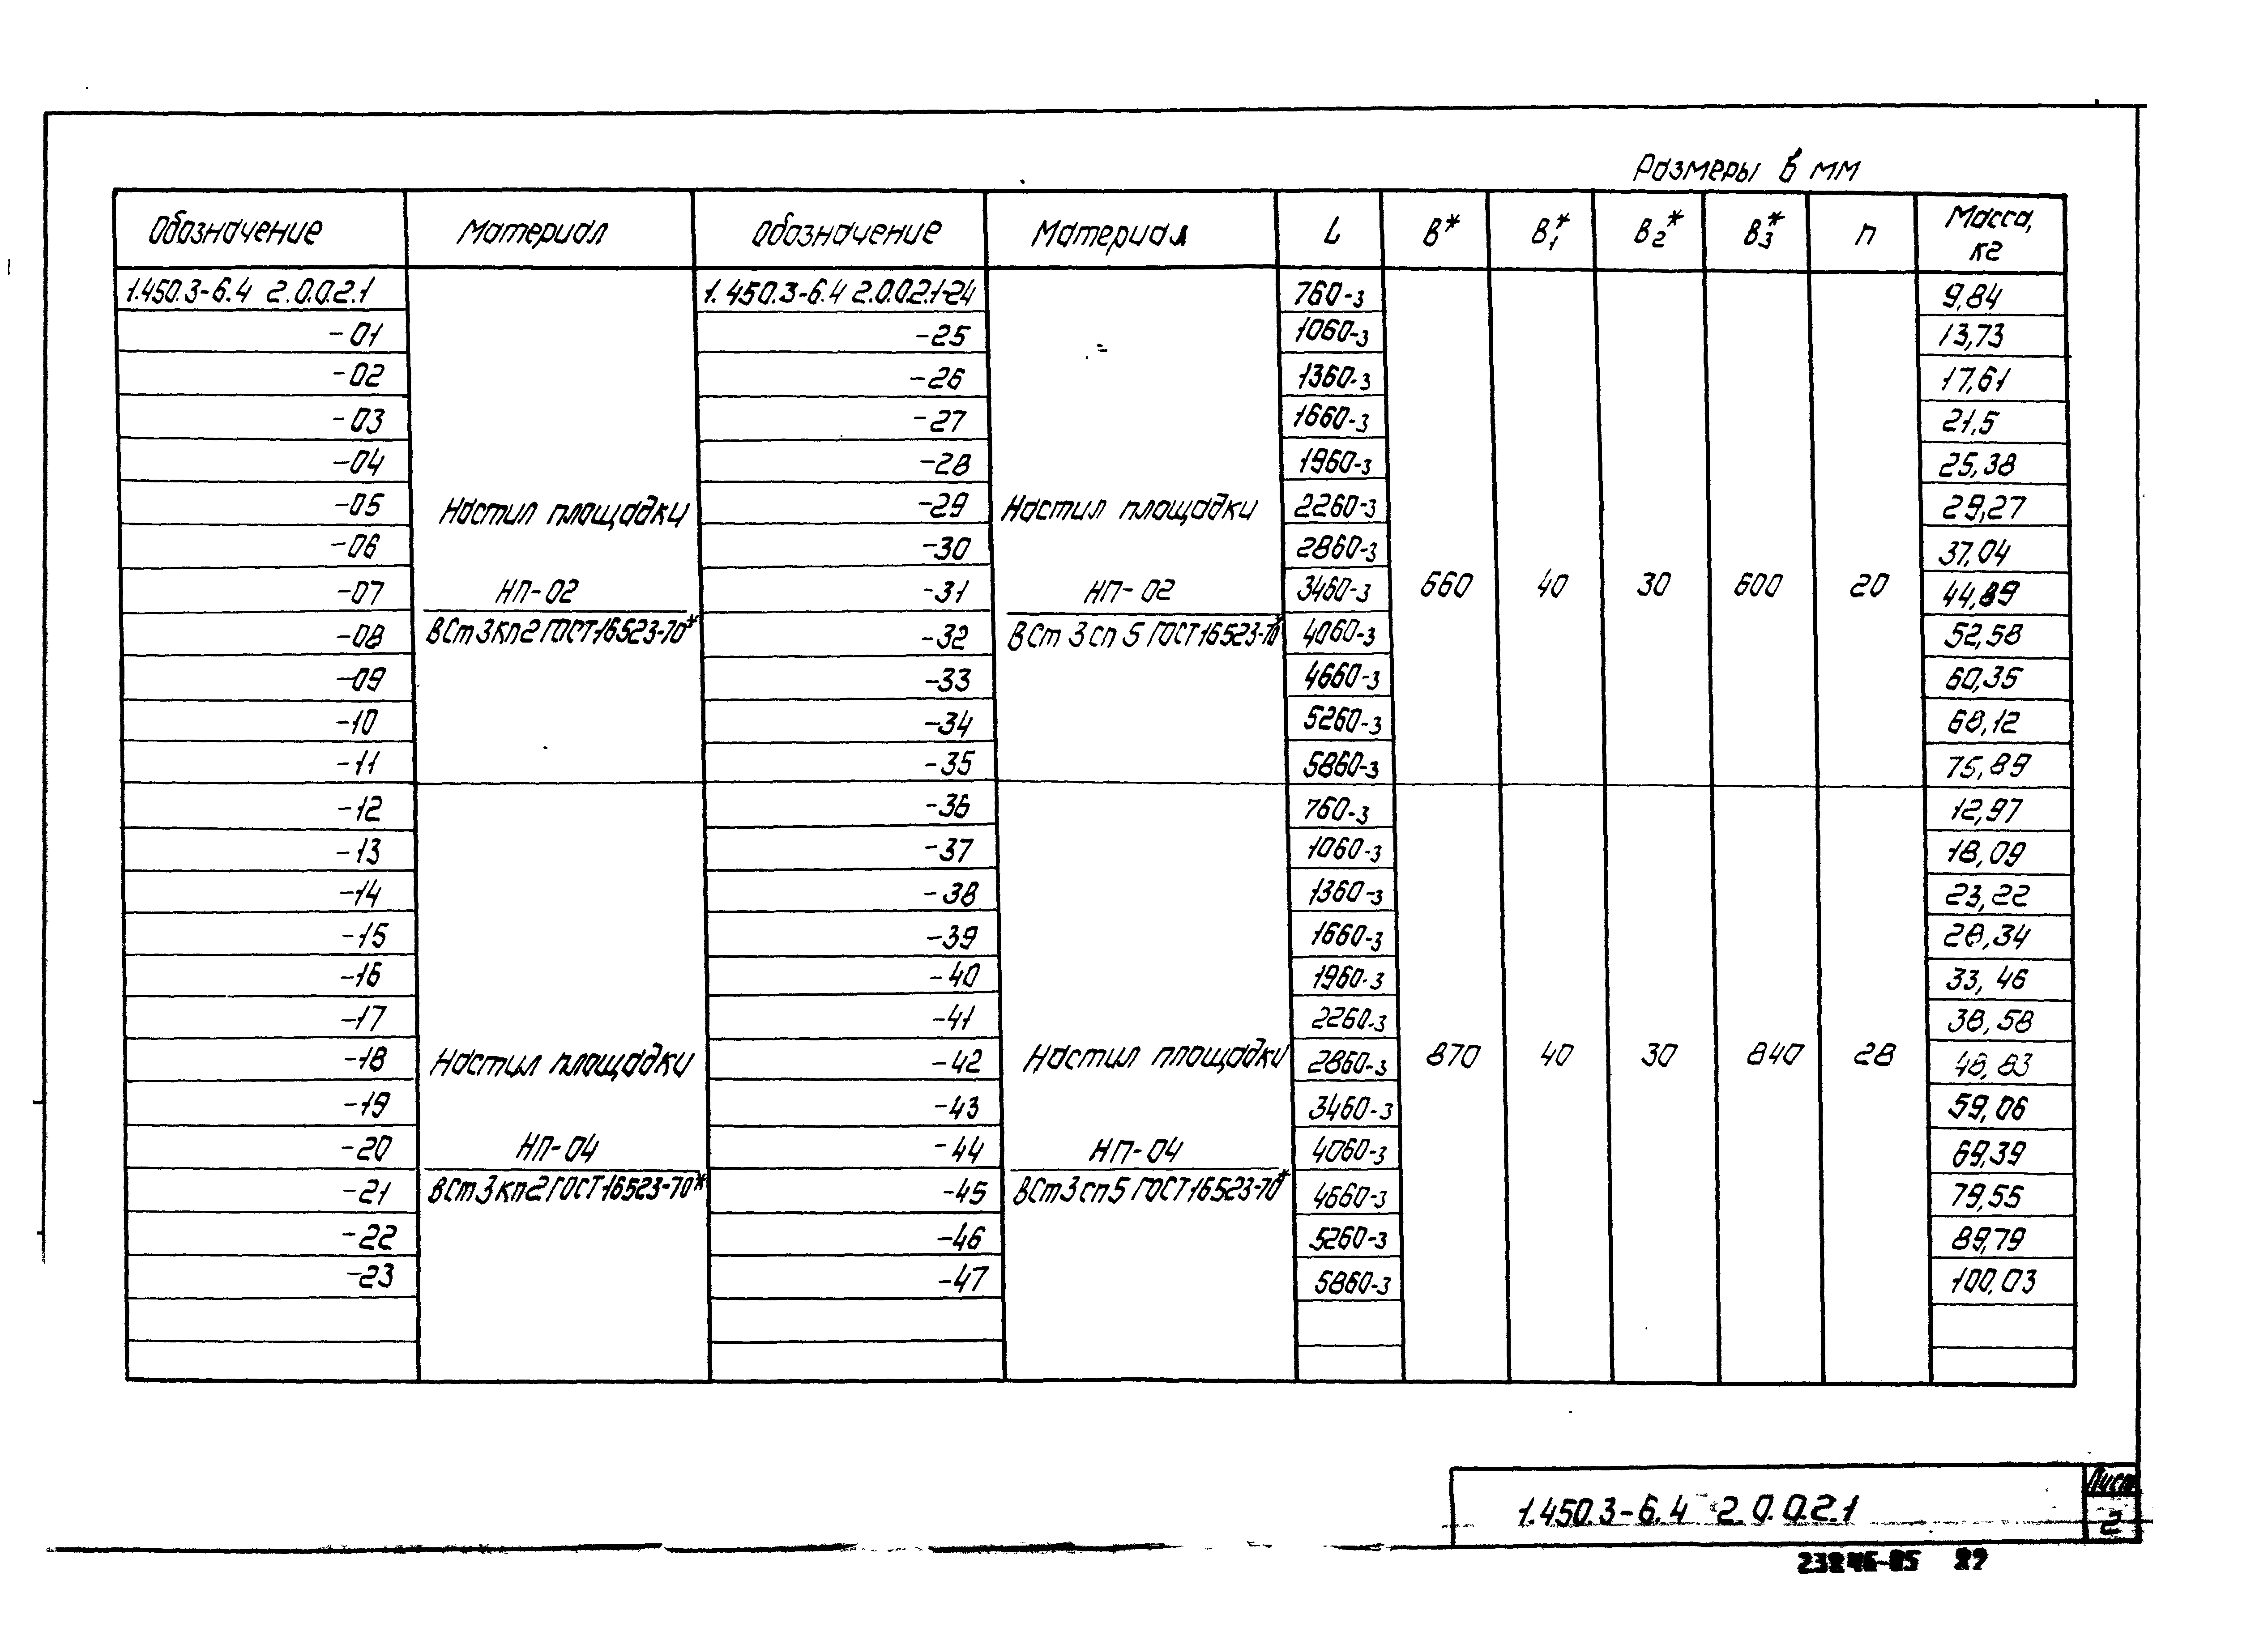 Размеры в мм
Обозначение Материал Обозначение Материал L B* B1* B2* B3* n Масса, кг
1.450.3-6.4 2.0.0.2.1 1.450.3-6.4 2.0.0.2.1-24 760-3 9,84
-01 -25 1060-3 13,73
-02 -26 1360-3 17,61
-03 -27 1660-3 21,5
-04 -28 1960-3 25,38
-05 Настил площадки -29 Настил площадки 2260-3 29,27
-06 -30 2860-3 37,04
-07 НП-02 -31 НП-02 3460-3 660 40 30 600 20 44,89
-08 ВСт3кп2 ГОСТ 16523-70* -32 ВСт3сп5 ГОСТ 16523-70* 4060-3 52,58
-09 -33 4660-3 60,35
-10 -34 5260-3 68,12
-11 -35 5860-3 75,89
-12 -36 760-3 12,97
-13 -37 1060-3 18,09
-14 -38 1360-3 23,22
-15 -39 1660-3 28,34
-16 -40 1960-3 33,46
-17 -41 2260-3 38,58
-18 Настил площадки -42 Настил площадки 2860-3 870 40 30 840 28 48,83
-19 -43 3460-3 59,06
-20 НП-04 -44 НП-04 4060-3 69,39
-21 ВСт3кп2 ГОСТ 16523-70* -45 ВСт3сп5 ГОСТ 16523-70* 4660-3 79,55
-22 -46 5260-3 89,79
-23 -47 5860-3 100,03
1.450.3-6.4 2.0.0.2.1
Лист
2